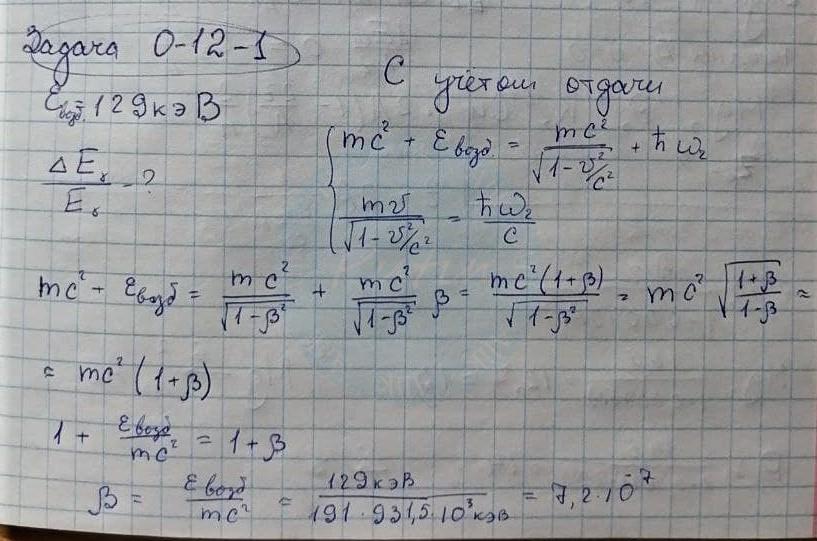 Задача 0-12-1
С учётом отдачи
εвозб. = 129 кэВ
ΔEγ/Eγ - ?
{ mc² + εвозб. = mc²/√(1-v²/c²) + ħω₂
mv/√(1-v²/c²) = ħω₂/c
mc² + εвозб = mc²/√(1-β²) + mc²/√(1-β²) β = mc²(1+β)/√(1-β²) = mc² √((1+β)/(1-β)) ≈
≈ mc² (1+β)
1 + εвозб/mc² = 1 + β
β = εвозб/mc² = 129 кэВ/(191 · 931,5 · 10³ кэВ) = 7,2 · 10⁻⁷